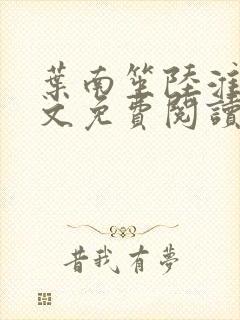 葉南笙陸淮
文免費閱讀
昔我有夢